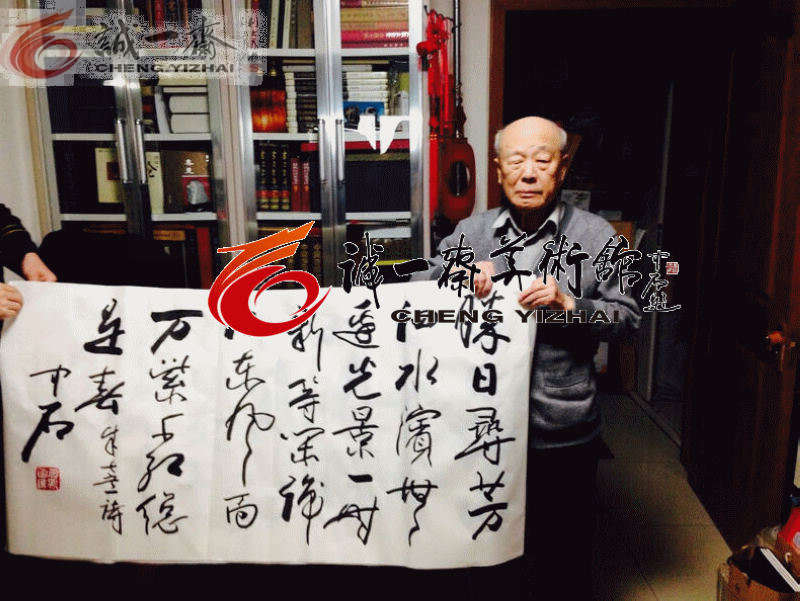 誠一斋
CHENG YIZHAI
诚一斋美術館
CHENG YIZHAI
勝日尋芳
泗水濱無
邊光景一时
新等闲識
东风面
万紫千红總
是春 朱熹詩
中石